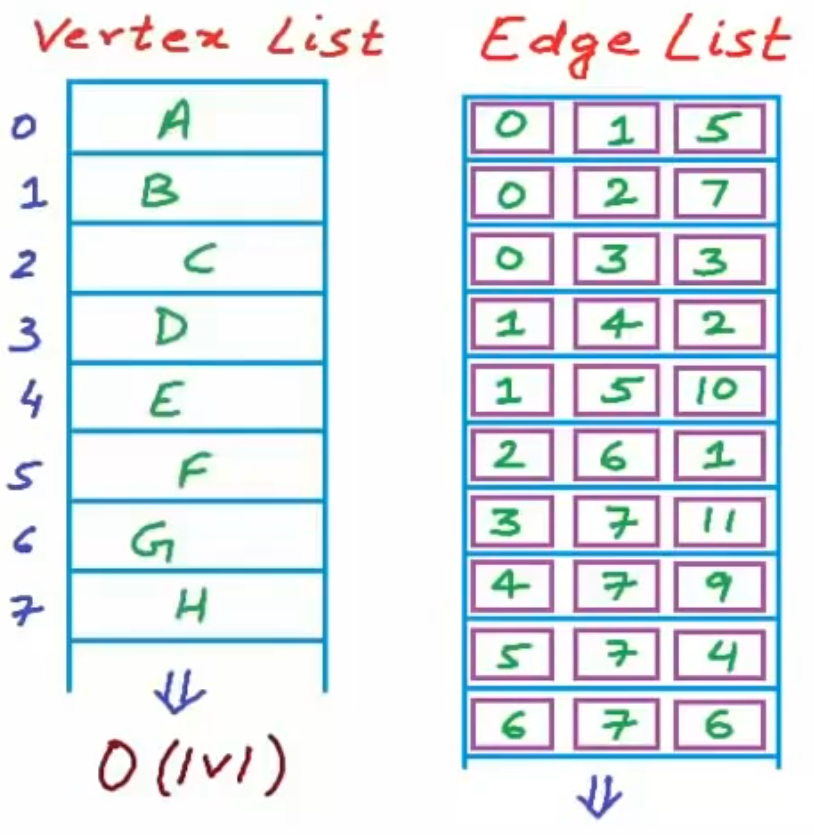 Vertex List
0 A
1 B
2 C
3 D
4 E
5 F
6 G
7 H
O(|V|)
Edge List
0 1 5
0 2 7
0 3 3
1 4 2
1 5 10
2 6 1
3 7 11
4 7 9
5 7 4
6 7 6